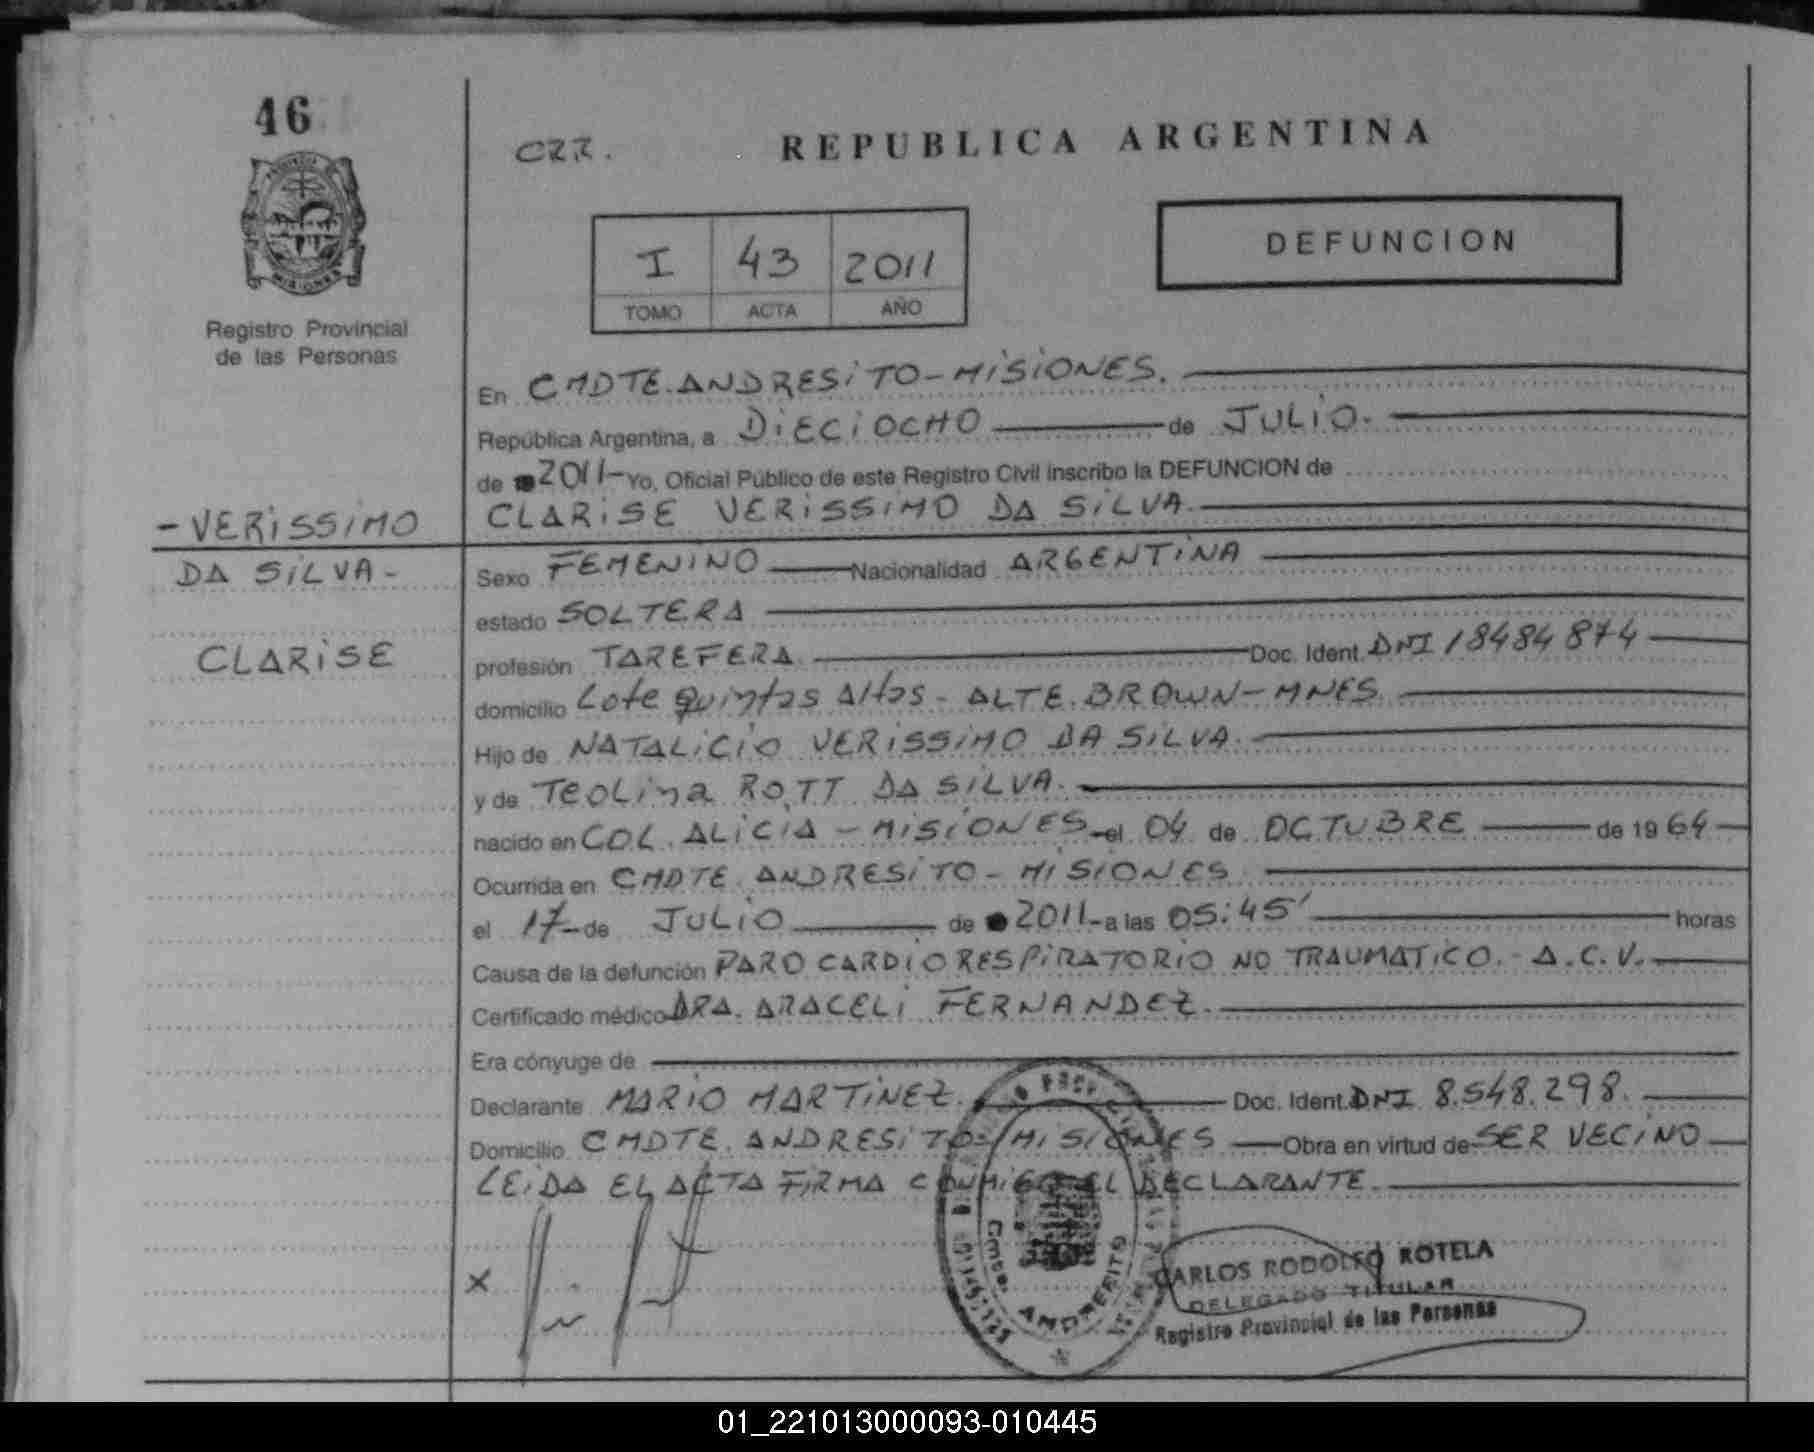 46
CRR.
REPUBLICA ARGENTINA
PROVINCIA
MISIONES
Registro Provincial
de las Personas
I 43 2011
TOMO ACTA AÑO
DEFUNCION
En CMDTE. ANDRESITO - MISIONES.
República Argentina, a DIECIOCHO de JULIO.
de 2011- Yo, Oficial Público de este Registro Civil inscribo la DEFUNCION de
- VERISSIMO
DA SILVA -
CLARISE
CLARISE VERISSIMO DA SILVA.
Sexo FEMENINO Nacionalidad ARGENTINA
estado SOLTERA
profesión TAREFERA. Doc. Ident. DNI 18484874
domicilio Lote quintas Altas - ALTE. BROWN - MNES.
Hijo de NATALICIO VERISSIMO DA SILVA.
y de TEOLINA ROTT DA SILVA.
nacido en COL. ALICIA - MISIONES - el 04 de OCTUBRE de 1964
Ocurrida en CMDTE. ANDRESITO - MISIONES
el 17 - de JULIO de 2011 - a las 05:45' horas
Causa de la defunción PARO CARDIORESPIRATORIO NO TRAUMATICO. - A.C.V.
Certificado médico DRA. ARACELI FERNANDEZ.
Era cónyuge de
Declarante MARIO MARTINEZ. Doc. Ident. DNI 8.548.298.
Domicilio CMDTE. ANDRESITO - MISIONES Obra en virtud de SER VECINO
LEIDA EL ACTA FIRMA CONMIGO EL DECLARANTE.
X
Cmte. ANDRESITO
CARLOS RODOLFO ROTELA
DELEGADO TITULAR
Registro Provincial de las Personas
01_221013000093-010445